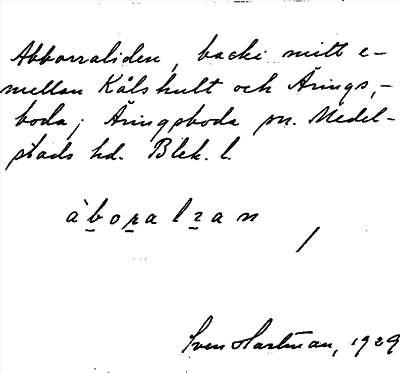 Abborraliden, backe mitt e-
mellan Kålshult och Årings,-
boda; Åringsboda sn. Medel-
stads hd. Blek. l.
àboralzan
/
Sven Hartman, 1929